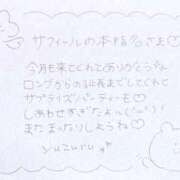 サフィールの本指名さま♡
今月も来てくれてありがとう
ロングからの延長までしてくれて
サプライズパーティーも♡
しあわせすぎたよっ(´ー`)
またまったりしようね♡
yuzuru